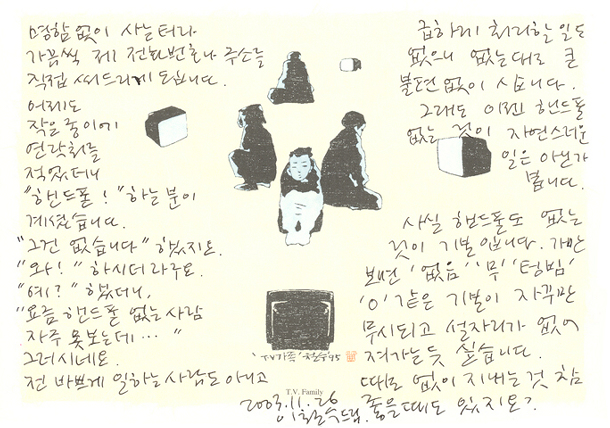 명함 없이 사는 터라
가끔씩 제 전화번호나 주소를
직접 써드리게 됩니다.
어제도
작은 종이에
연락처를
적었더니
"핸드폰!" 하는 분이
계셨습니다.
"그건 없습니다" 했지요.
"와!" 하시더라구요.
"예?" 했더니,
"요즘 핸드폰 없는 사람
자주 못보는데… "
그러시네요.
전 바쁘게 일하는 사람도 아니고
급하게 처리할 일도
없으니 없는대로 큰
불편 없이 삽니다.
그래도 이젠 핸드폰
없는 것이 자연스러운
일은 아닌가
봅니다.
사실 핸드폰도 없는
것이 기본입니다. 가만
보면 '없음' '무' '텅빔'
'0' 같은 기본이 자꾸만
무시되고 설자리가 없어
져가는듯 싶습니다.
때로 없이 지내는 것 참
좋을때도 있지요?
2003.11.26
이철수드림.
'T.V가족' 철수95
T.V. Family